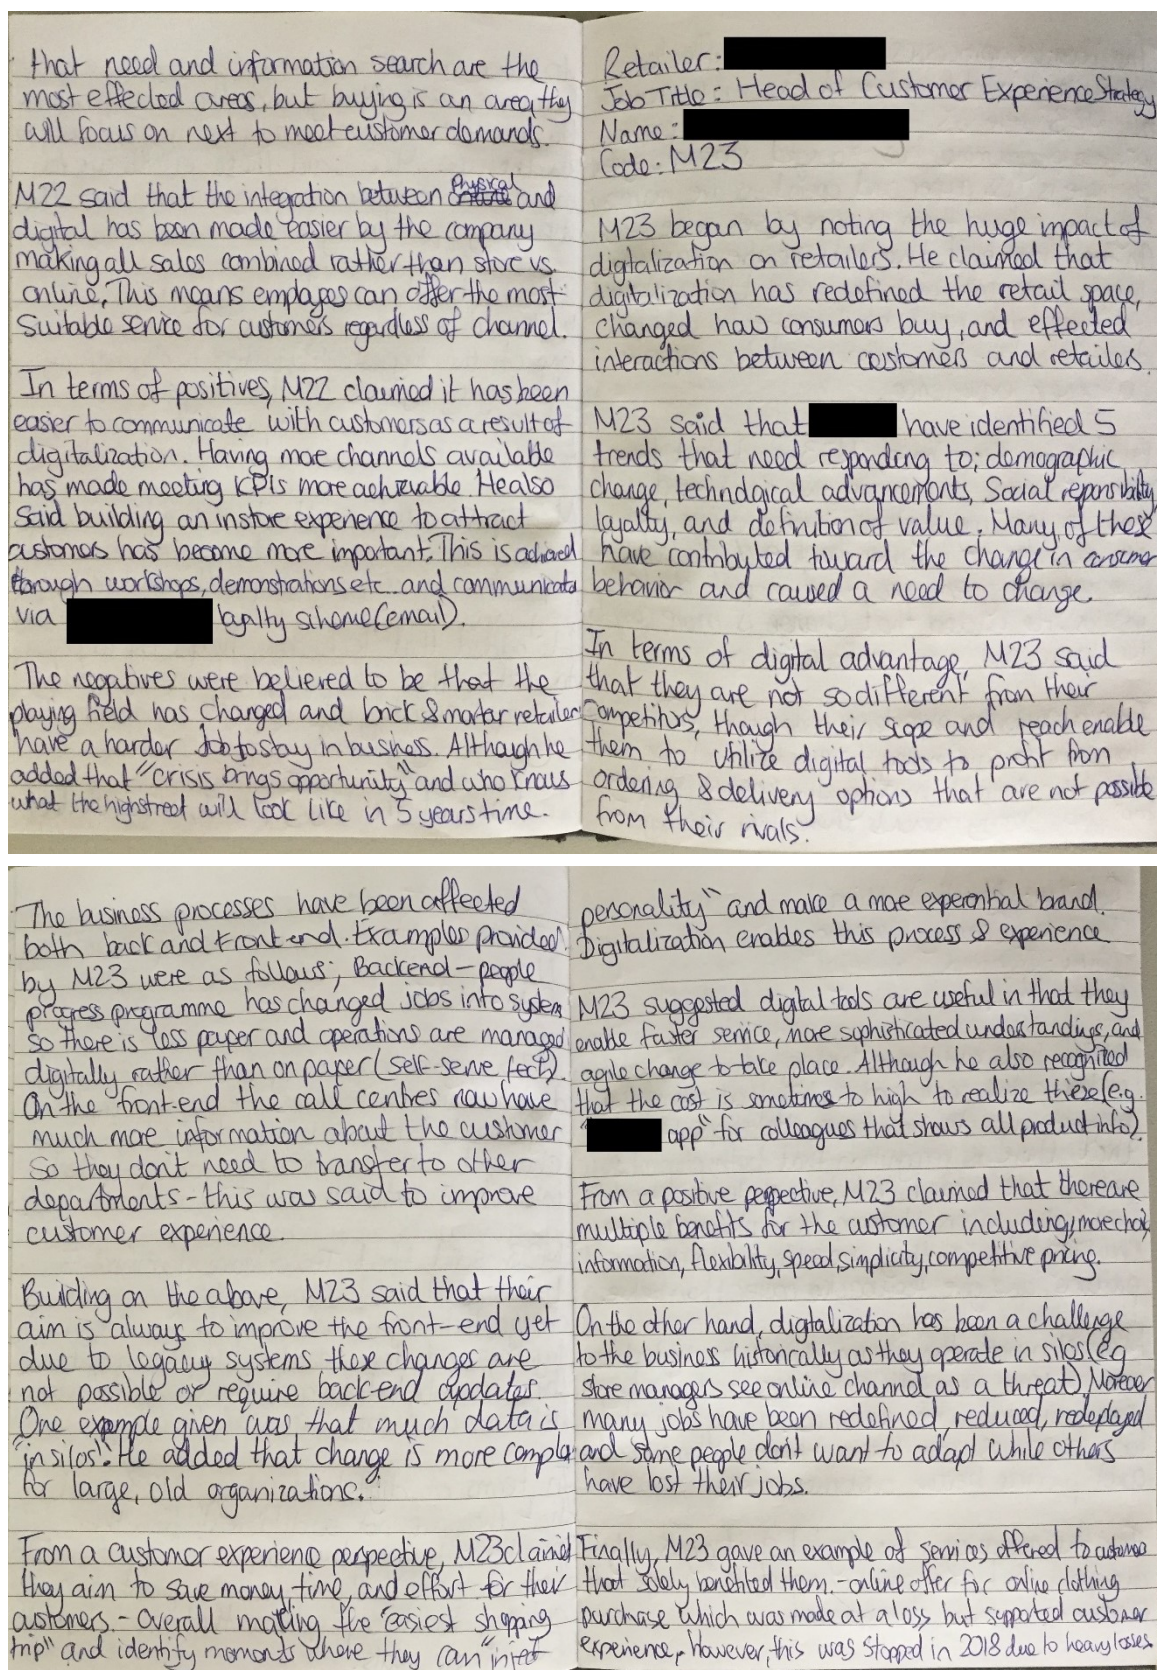 that need and information search are the
most effected areas, but buying is an area they
will focus on next to meet customer demands.
M22 said that the integration between Physical and
digital has been made easier by the company
making all sales combined rather than store vs.
online. This means employees can offer the most
suitable service for customers regardless of channel.
In terms of positives, M22 claimed it has been
easier to communicate with customers as a result of
digitalization. Having more channels available
has made meeting KPIs more achievable. He also
said building an instore experience to attract
customers has become more important. This is achieved
through workshops, demonstrations etc. and communicated
via loyalty scheme (email).
The negatives were believed to be that the
playing field has changed and brick & mortar retailers
have a harder job to stay in business. Although he
added that "crisis brings opportunity" and who knows
what the highstreet will look like in 5 years time.
Retailer:
Job Title: Head of Customer Experience Strategy
Name:
Code: M23
M23 began by noting the huge impact of
digitalization on retailers. He claimed that
digitalization has redefined the retail space,
changed how consumers buy, and effected
interactions between customers and retailers.
M23 said that have identified 5
trends that need responding to; demographic
change, technological advancements, Social responsibility
loyalty, and definition of value. Many of these
have contributed toward the change in consumer
behavior and caused a need to change.
In terms of digital advantage, M23 said
that they are not so different from their
competitors, though their scope and reach enable
them to utilize digital tools to profit from
ordering & delivery options that are not possible
from their rivals.
The business processes have been affected
both back and front end. Examples provided
by M23 were as follows; Backend - people
progress programme has changed jobs into system
so there is less paper and operations are managed
digitally rather than on paper (self-serve tech).
On the front-end the call centres now have
much more information about the customer
so they don't need to transfer to other
departments - this was said to improve
customer experience.
Building on the above, M23 said that their
aim is always to improve the front-end yet
due to legacy systems these changes are
not possible or require back-end updates.
One example given was that much data is
"in silos". He added that change is more complex
for large, old organizations.
From a customer experience perspective, M23 claimed
they aim to save money, time, and effort for their
customers. - Overall making the "easiest shopping
trip" and identify moments where they can "inject
personality" and make a more experential brand.
Digitalization enables this process & experience
M23 suggested digital tools are useful in that they
enable faster service, more sophisticated understandings, and
agile change to take place. Although he also recognized
that the cost is sometimes to high to realize these (e.g.
" app" for colleagues that shows all product info).
From a positive perspective, M23 claimed that there are
multiple benefits for the customer including; more choice,
information, flexibility, speed, simplicity, competitive pricing.
On the other hand, digitalization has been a challenge
to the business historically as they operate in silos (eg
store managers see online channel as a threat). Moreover
many jobs have been redefined, reduced, redeployed
and some people don't want to adapt while others
have lost their jobs.
Finally, M23 gave an example of services offered to customers
that solely benefited them. - online offer for online clothing
purchase which was made at a loss but supported customer
experience, however, this was stopped in 2018 due to heavy losses.